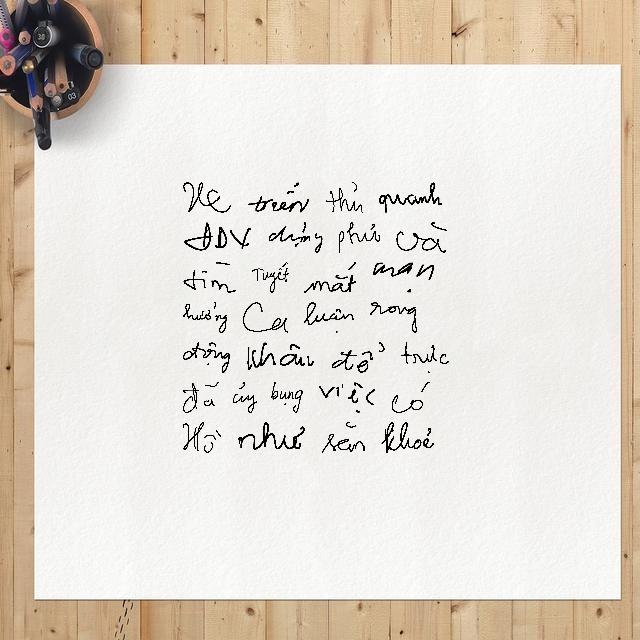 Hé triển thủ quanh
ĐDV dụng phút và
tìm Tuyết mắt mạn
hưởng Ca luận rong
động khẩu đổ trục
đã ủy bụng việc có
Hồ như sẵn khoẻ